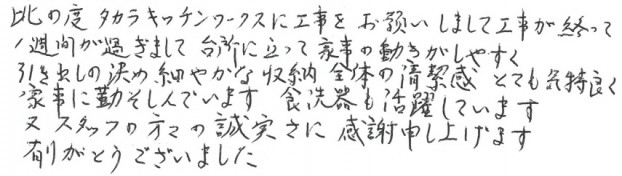 此の度 タカラキッチンワークスに工事を お願いしまして工事が終って
1週間が過ぎまして 台所に立って 家事の動きがしやすく
引き出しの決め細やかな収納 全体の清潔感 とても気持良く
家事に勤そしんでいます 食洗器も活躍しています
又 スタッフの方々の誠実さに 感謝申し上げます
有りがとうございました